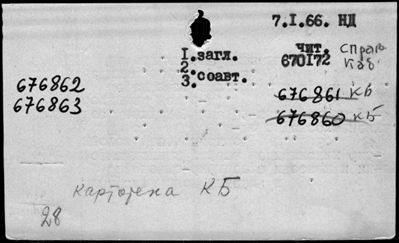 7.I.66. НД
I.загл.
2.
3.соавт.
чит.
670172
Справ
Каб
676862
676863
676861 КБ
676860 КБ
Картотека КБ
28